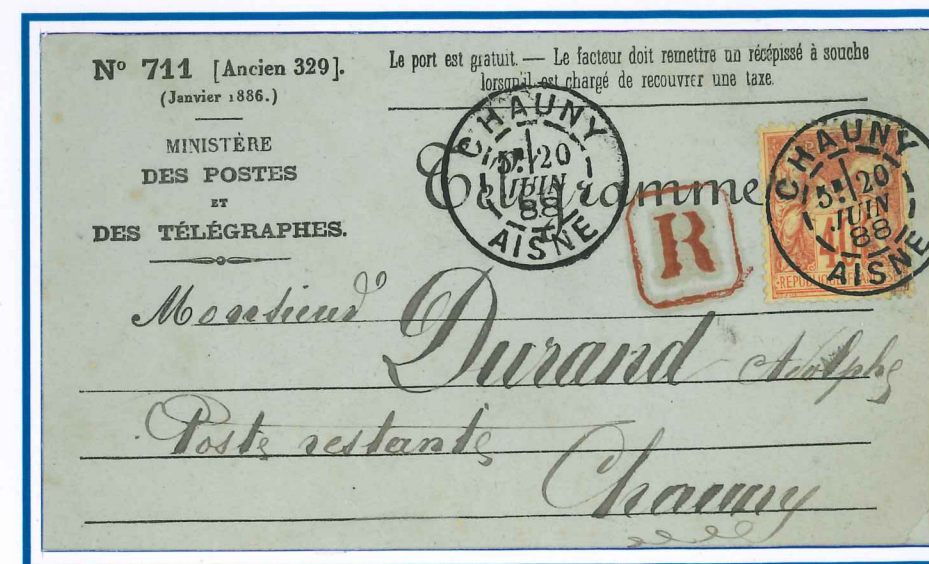 N° 711 [Ancien 329].
(Janvier 1886.)
MINISTÈRE
DES POSTES
ET
DES TÉLÉGRAPHES.
Le port est gratuit. — Le facteur doit remettre un récépissé à souche
lorsqu'il est chargé de recouvrer une taxe.
CHAUNY
20
JUIN
88
AISNE
R
CHAUNY
20
JUIN
88
AISNE
40
Monsieur Durand Adolphe
Poste restante
Chauny